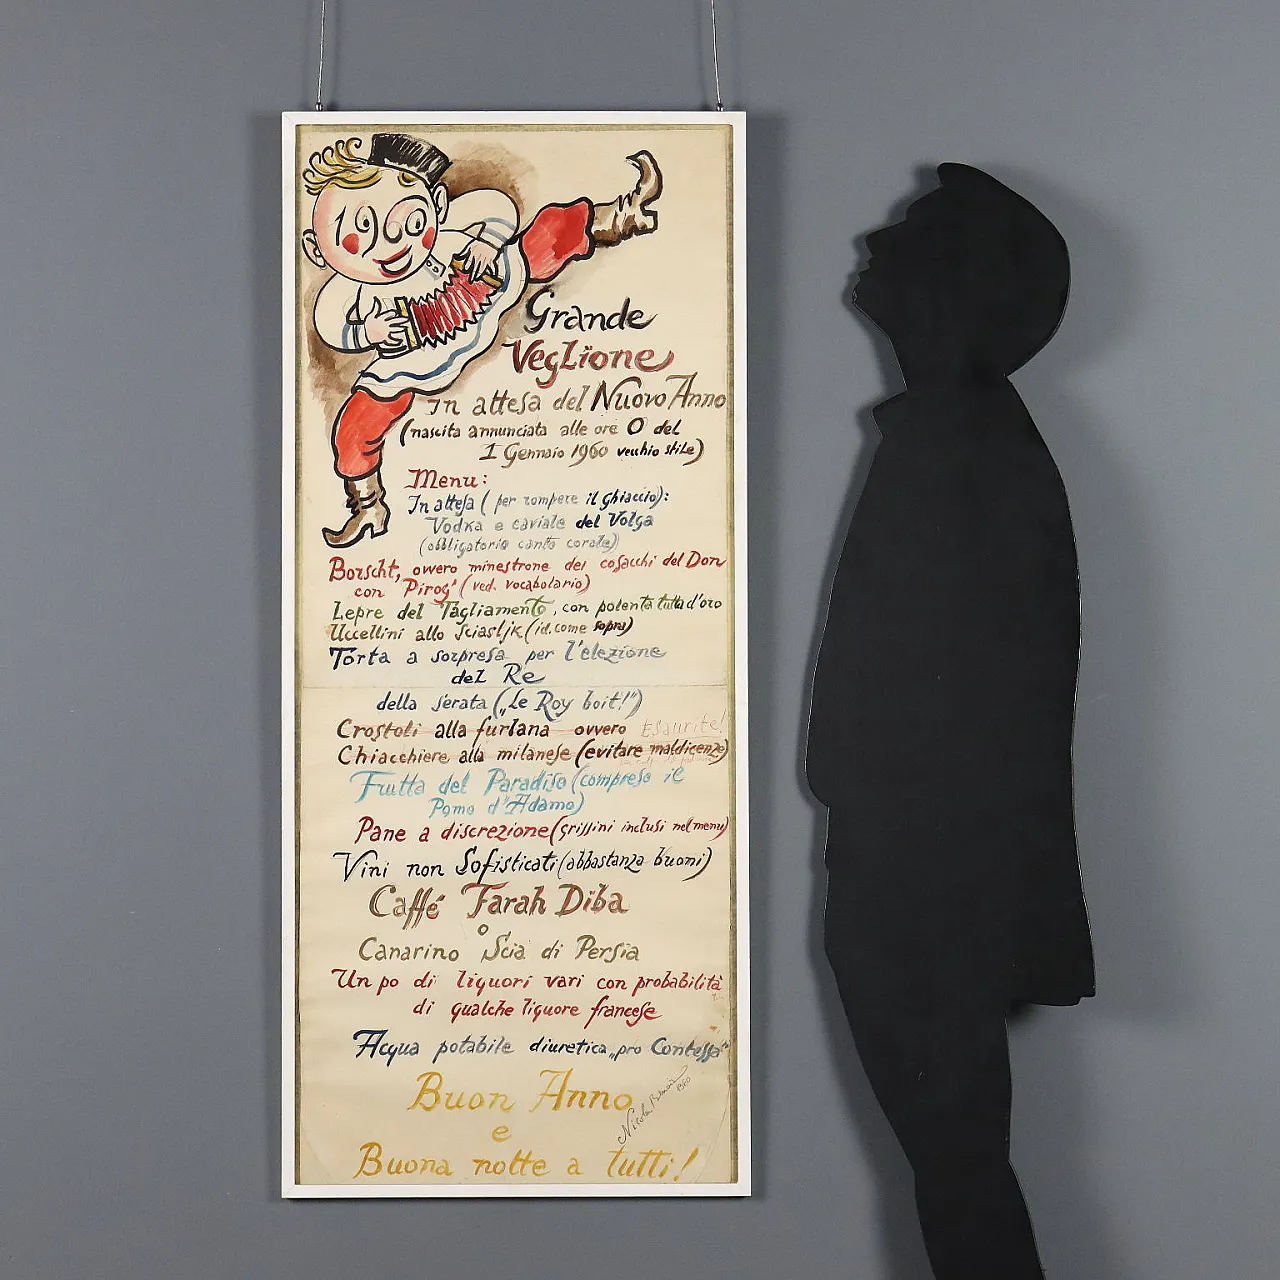 1960
Grande
Veglione
In attesa del Nuovo Anno
(nascita annunciata alle ore 0 del
1 Gennaio 1960 vecchio stile)
Menu:
In attesa (per rompere il ghiaccio):
Vodka e caviale del Volga
(obbligatorio canto corale)
Borscht, ovvero minestrone dei cosacchi del Don
con "Pirog" (ved. vocabolario)
Lepre del Tagliamento, con polenta tutta d'oro
Uccellini allo Sciasljk (id. come sopra)
Torta a sorpresa per l'elezione
del Re
della serata ("Le Roy boit!")
Crostoli alla furlana ovvero Esaurite!
Chiacchiere alla milanese (evitare maldicenze)
Frutta del Paradiso (compreso il
Pomo d'Adamo)
Pane a discrezione (grissini inclusi nel menu)
Vini non Sofisticati (abbastanza buoni)
Caffé Farah Diba
o
Canarino Scia di Persia
Un po di liquori vari con probabilità
di qualche liquore francese
Acqua potabile diuretica "pro Contessa"
Buon Anno
e
Buona notte a tutti!
Nicola 1960